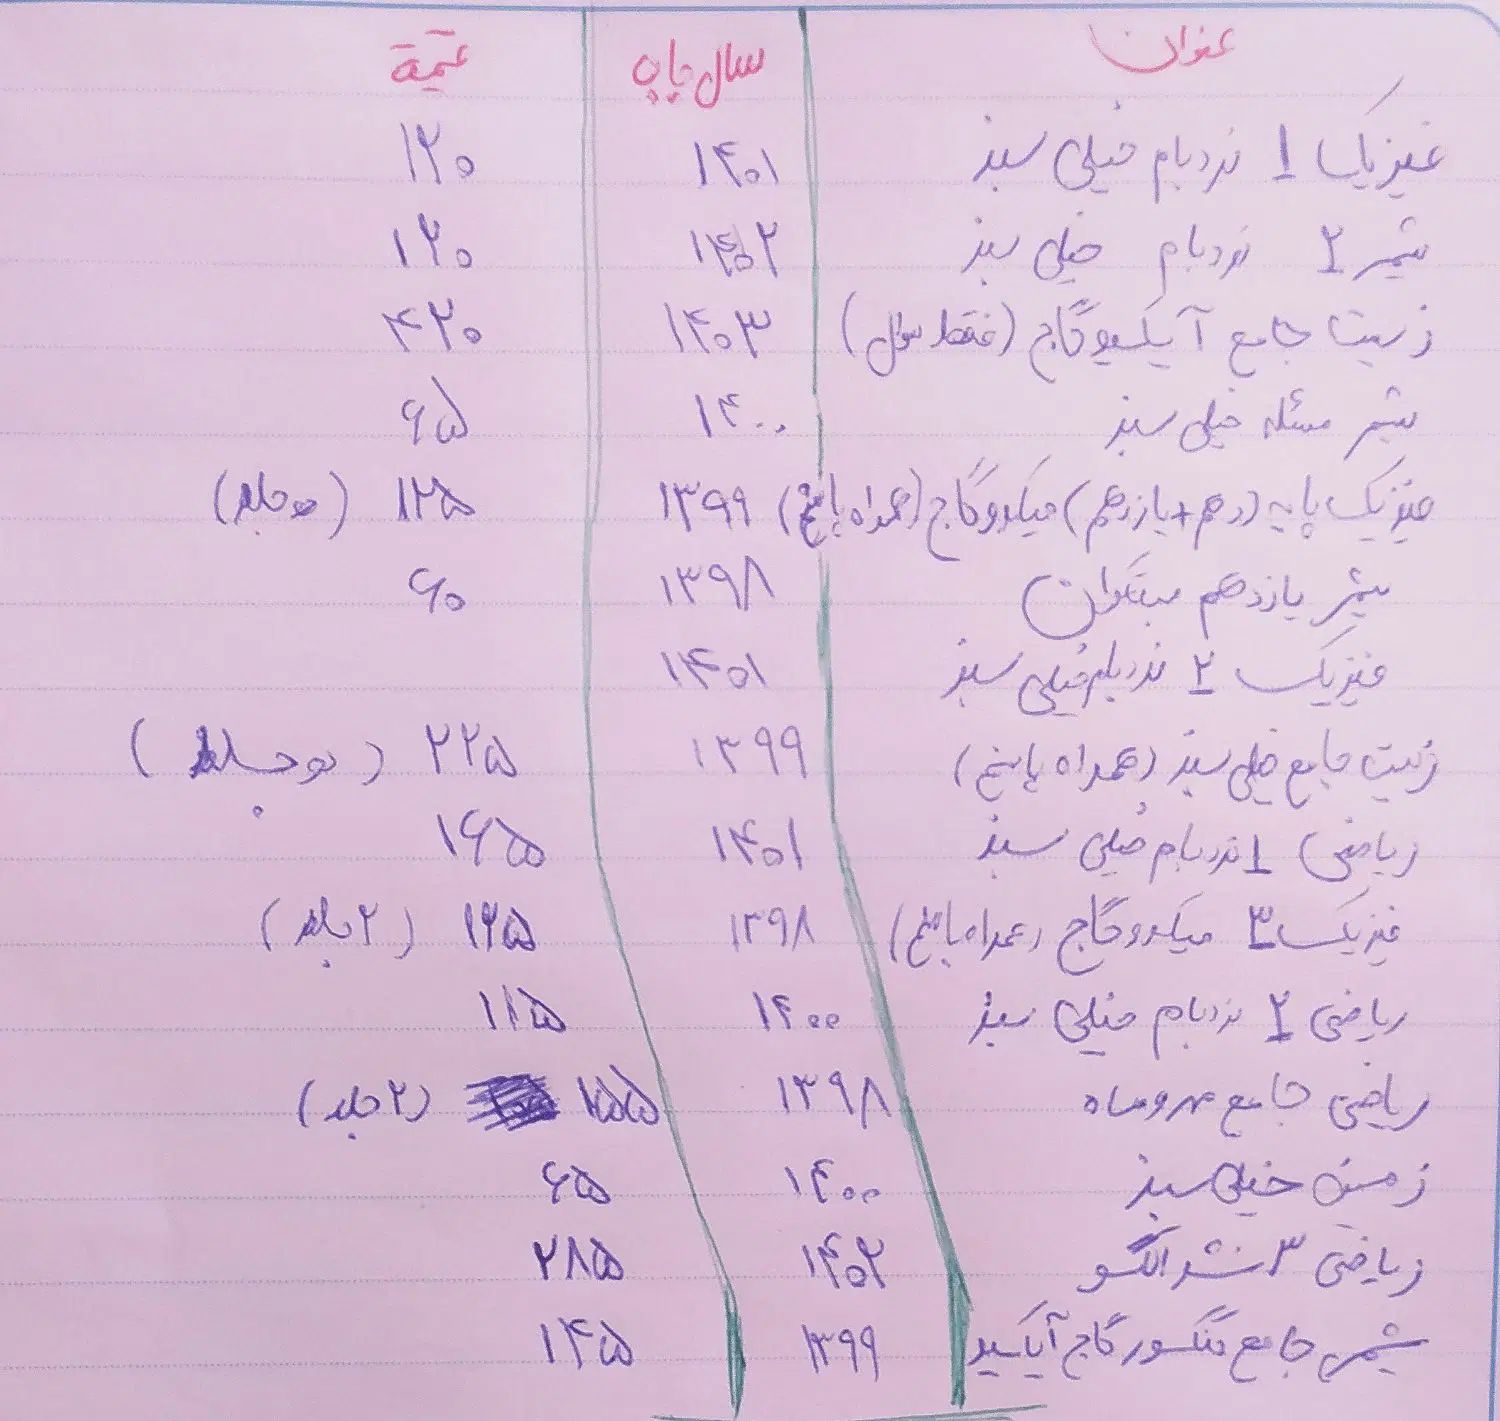 عنوان سال چاپ قیمة
فیزیک 1 نردبام خیلی سبز ۱۴۰۱ ۱۲۰
شیمی ۲ نردبام خیلی سبز ۱۴۰۲ ۱۲۰
زیست جامع آیکیوگاج (فقط سوال) ۱۴۰۳ ۴۲۰
شیمی مسئله خیلی سبز ۱۴۰۰ ۶۵
فیزیک پایه (دهم+یازدهم) میکروگاج (همراه پاسخ) ۱۳۹۹ ۱۲۵ (دو جلد)
شیمی یازدهم مبتکران ۱۳۹۸ ۶۰
فیزیک ۲ نردبام خیلی سبز ۱۴۰۱
زیست جامع خیلی سبز (همراه پاسخ) ۱۳۹۹ ۲۲۵ (دو جلد)
ریاضی 1 نردبام خیلی سبز ۱۴۰۱ ۱۶۵
فیزیک ۳ میکروگاج (همراه پاسخ) ۱۳۹۸ (۲ جلد)
ریاضی ۲ نردبام خیلی سبز ۱۴۰۰ ۱۱۵
ریاضی جامع مهروماه ۱۳۹۸ ۱۵۵ (۲ جلد)
زمین خیلی سبز ۱۴۰۰ ۶۵
ریاضی ۳ نشر الگو ۱۴۰۲ ۲۸۵
شیمی جامع کنکور گاج آیکیو ۱۳۹۹ ۱۴۵